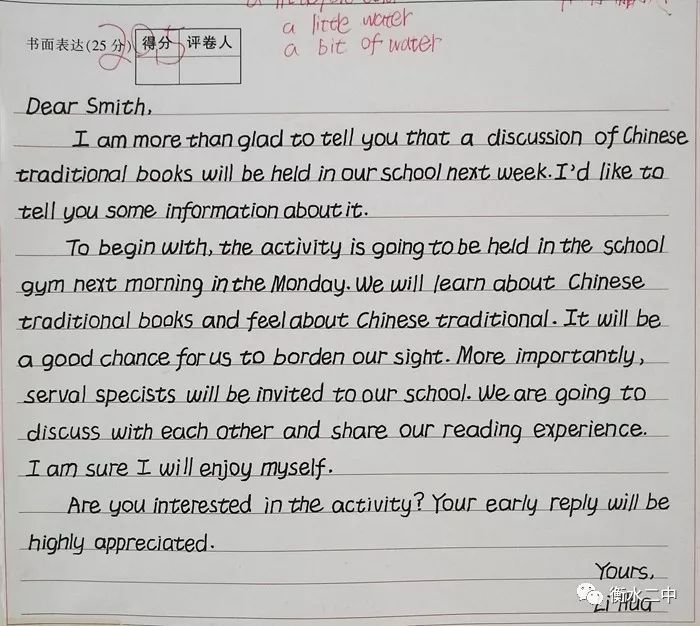 a little water
a bit of water
书面表达(25分) 得分 评卷人
Dear Smith,
I am more than glad to tell you that a discussion of Chinese
traditional books will be held in our school next week. I'd like to
tell you some information about it.
To begin with, the activity is going to be held in the school
gym next morning in the Monday. We will learn about Chinese
traditional books and feel about Chinese traditional. It will be
a good chance for us to borden our sight. More importantly,
serval specists will be invited to our school. We are going to
discuss with each other and share our reading experience.
I am sure I will enjoy myself.
Are you interested in the activity? Your early reply will be
highly appreciated.
Yours,
Li Hua
衡水二中